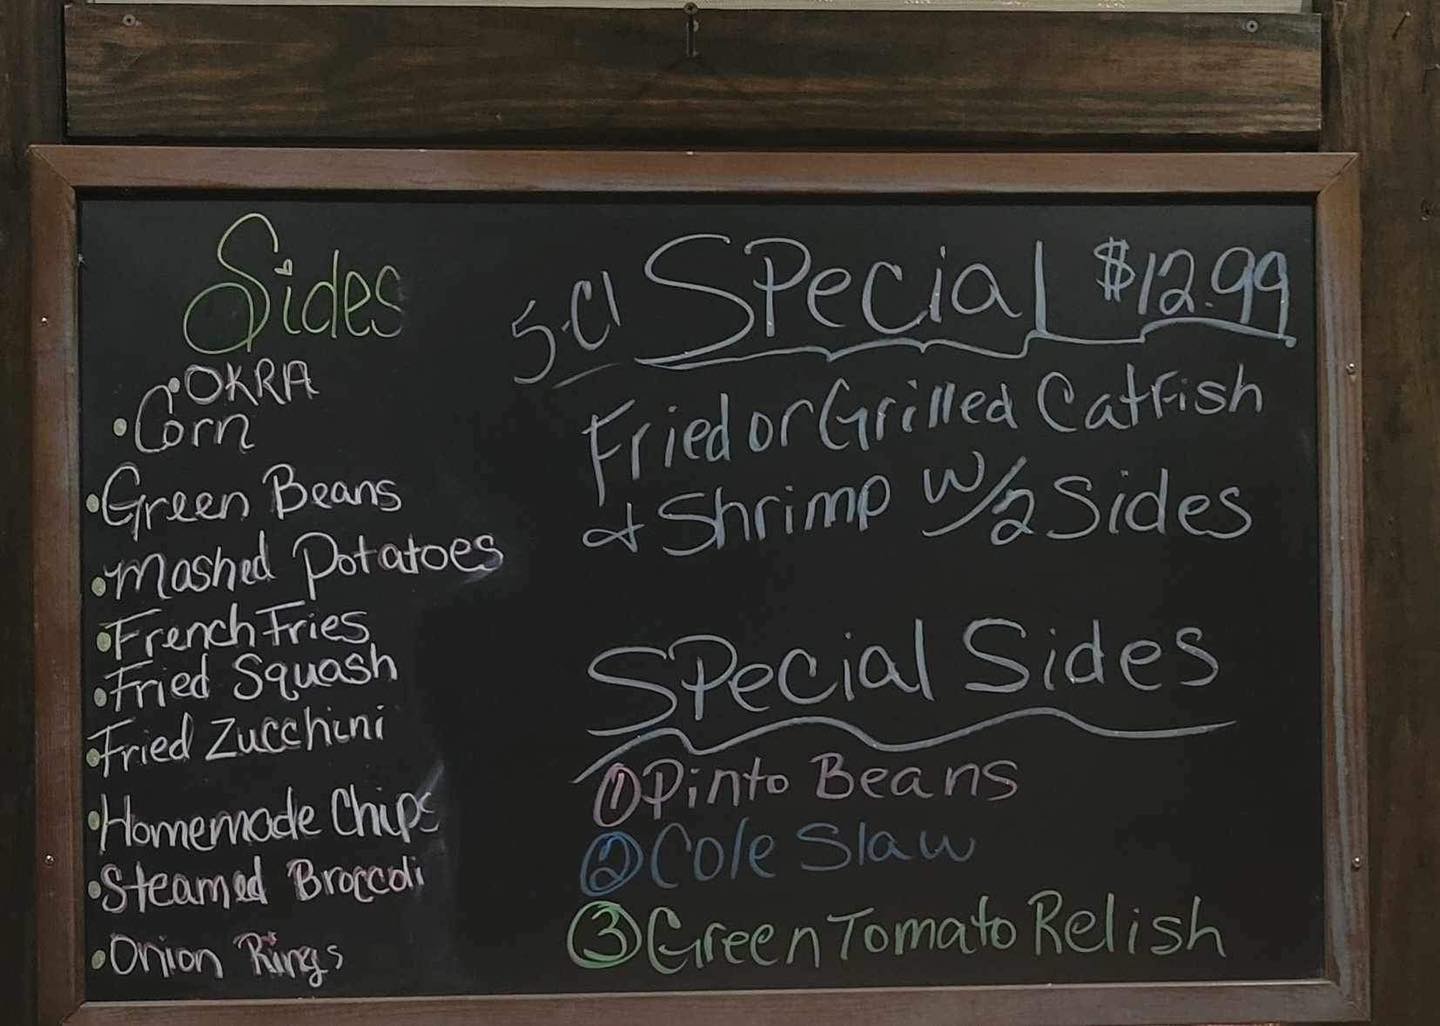 Sides
• OKRA
• Corn
• Green Beans
• Mashed Potatoes
• French Fries
• Fried Squash
• Fried Zucchini
• Homemade Chips
• Steamed Broccoli
• Onion Rings
5-Cl Special $12.99
Fried or Grilled Catfish
& Shrimp w/2 Sides
Special Sides
① Pinto Beans
② Cole Slaw
③ Green Tomato Relish